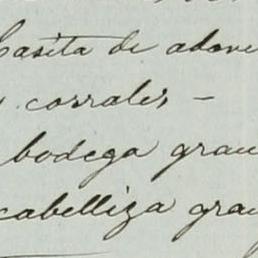 Casita de adove
corrales –
bodega gran
cabelliza gran